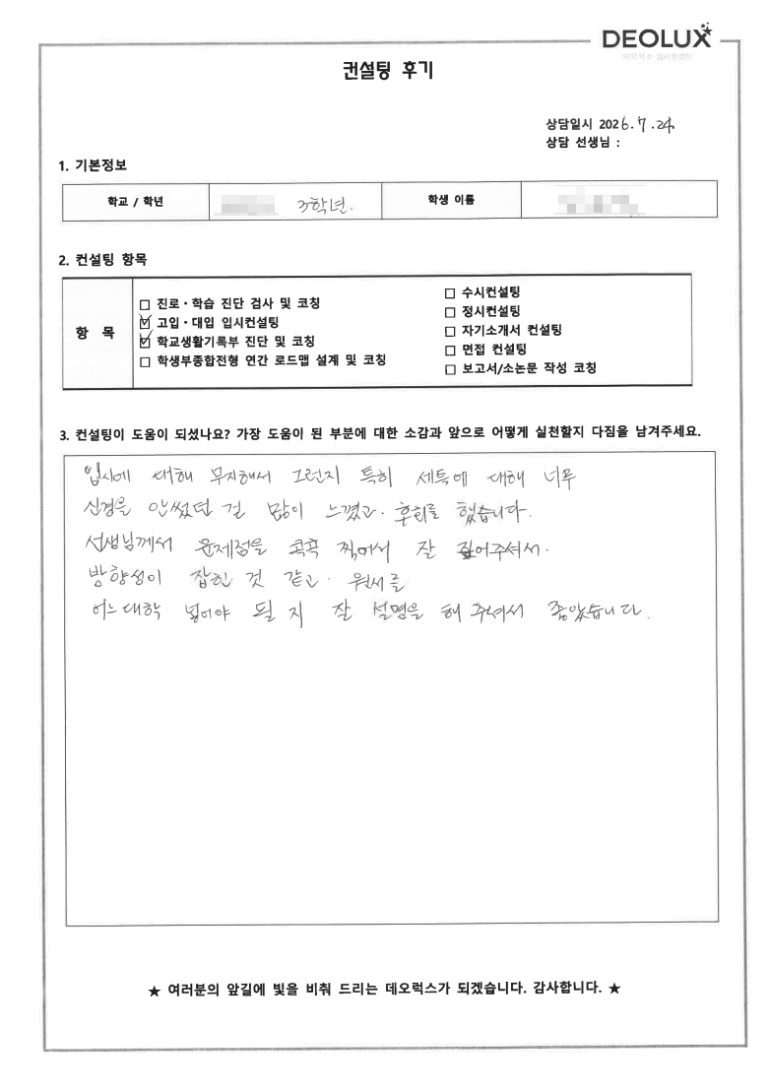 DEOLUX
컨설팅 후기
상담일시 2026.7.24.
상담 선생님 :
1. 기본정보
학교 / 학년 3학년. 학생 이름
2. 컨설팅 항목
항 목
□ 진로·학습 진단 검사 및 코칭
☑ 고입·대입 입시컨설팅
☑ 학교생활기록부 진단 및 코칭
□ 학생부종합전형 연간 로드맵 설계 및 코칭
□ 수시컨설팅
□ 정시컨설팅
□ 자기소개서 컨설팅
□ 면접 컨설팅
□ 보고서/소논문 작성 코칭
3. 컨설팅이 도움이 되셨나요? 가장 도움이 된 부분에 대한 소감과 앞으로 어떻게 실천할지 다짐을 남겨주세요.
입시에 대해 무지해서 그런지 특히 세특에 대해 너무
신경을 안썼던 걸 많이 느꼈고. 후회를 했습니다.
선생님께서 문제점을 콕콕 찍어서 잘 짚어주셔서.
방향성이 잡힌 것 같고. 원서를
어느 대학 넣어야 될 지 잘 설명을 해 주셔서 좋았습니다.
★ 여러분의 앞길에 빛을 비춰 드리는 데오럭스가 되겠습니다. 감사합니다. ★